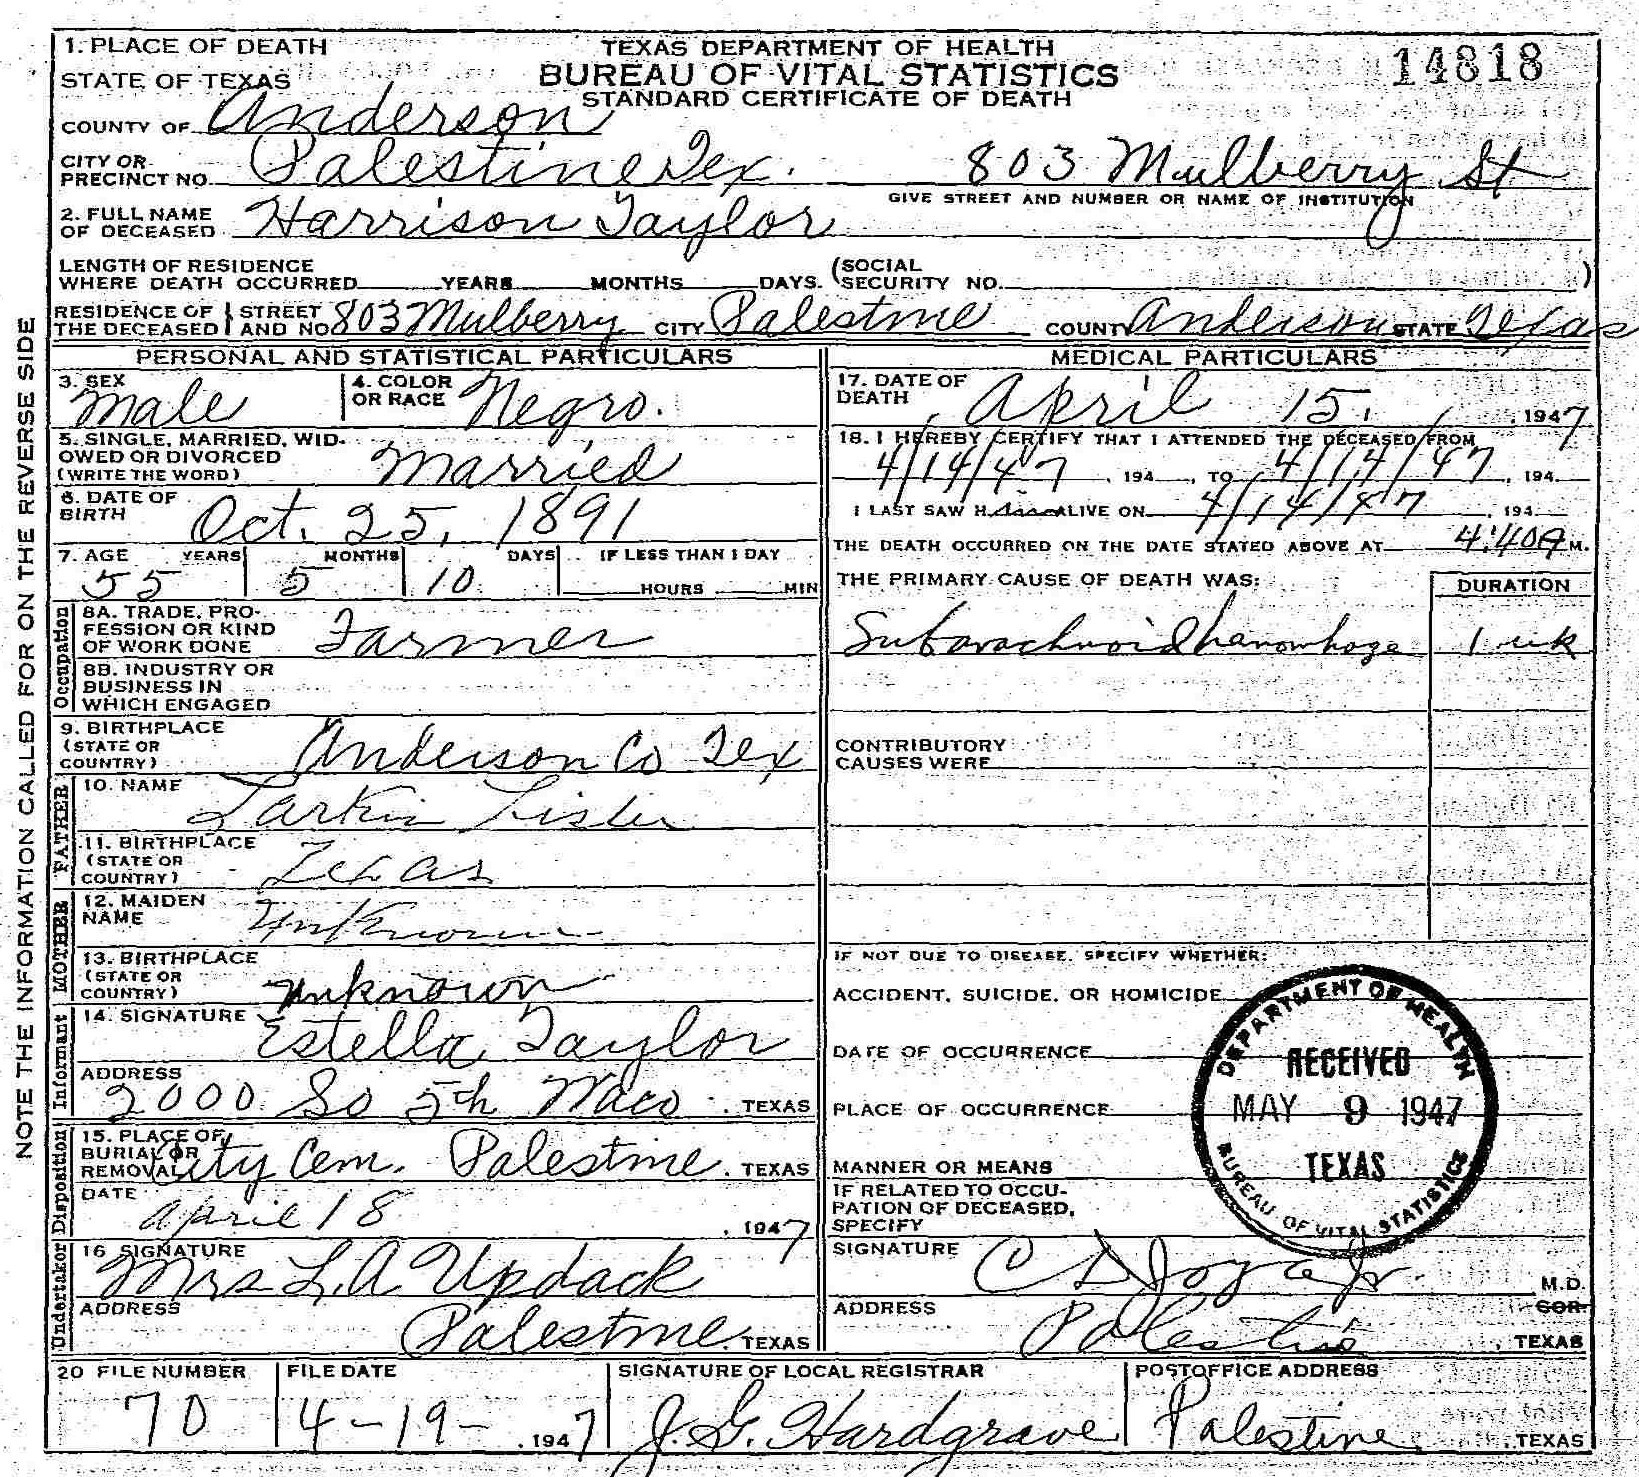 NOTE THE INFORMATION CALLED FOR ON THE REVERSE SIDE
1. PLACE OF DEATH
STATE OF TEXAS
TEXAS DEPARTMENT OF HEALTH
BUREAU OF VITAL STATISTICS
STANDARD CERTIFICATE OF DEATH
14818
COUNTY OF Anderson
CITY OR PRECINCT NO. Palestine Tex. 803 Mulberry St
GIVE STREET AND NUMBER OR NAME OF INSTITUTION
2. FULL NAME OF DECEASED Harrison Taylor
LENGTH OF RESIDENCE WHERE DEATH OCCURRED YEARS MONTHS DAYS. (SOCIAL SECURITY NO. )
RESIDENCE OF THE DECEASED STREET AND NO 803 Mulberry CITY Palestine COUNTY Anderson STATE Texas
PERSONAL AND STATISTICAL PARTICULARS
3. SEX Male
4. COLOR OR RACE Negro.
5. SINGLE, MARRIED, WIDOWED OR DIVORCED (WRITE THE WORD) Married
6. DATE OF BIRTH Oct. 25, 1891
7. AGE YEARS MONTHS DAYS IF LESS THAN 1 DAY
55 5 10 HOURS MIN
Occupation
8A. TRADE, PROFESSION OR KIND OF WORK DONE Farmer
8B. INDUSTRY OR BUSINESS IN WHICH ENGAGED
9. BIRTHPLACE (STATE OR COUNTRY) Anderson Co Tex
FATHER
10. NAME Larkin Lister
11. BIRTHPLACE (STATE OR COUNTRY) Texas
MOTHER
12. MAIDEN NAME Unknown
13. BIRTHPLACE (STATE OR COUNTRY) unknown
Informant
14. SIGNATURE Estella Taylor
ADDRESS
2000 So 5th Waco TEXAS
Disposition
15. PLACE OF BURIAL OR REMOVAL City Cem. Palestine. TEXAS
DATE April 18, 1947
Undertaker
16 SIGNATURE
Mrs L. A Updack
ADDRESS
Palestine. TEXAS
MEDICAL PARTICULARS
17. DATE OF DEATH April 15, 1947
18. I HEREBY CERTIFY THAT I ATTENDED THE DECEASED FROM
4/14/47, 194 , TO 4/14/47, 194
I LAST SAW H him ALIVE ON 4/14/47, 194
THE DEATH OCCURRED ON THE DATE STATED ABOVE AT 4:40 A M.
THE PRIMARY CAUSE OF DEATH WAS: DURATION
Subarachnoid hemorrhage 1 wk
CONTRIBUTORY CAUSES WERE
IF NOT DUE TO DISEASE, SPECIFY WHETHER:
ACCIDENT, SUICIDE, OR HOMICIDE
DATE OF OCCURRENCE
PLACE OF OCCURRENCE
MANNER OR MEANS
IF RELATED TO OCCUPATION OF DECEASED, SPECIFY
DEPARTMENT OF HEALTH
RECEIVED
MAY 9 1947
TEXAS
BUREAU OF VITAL STATISTICS
SIGNATURE C D Joyce Jr. M.D.
COR
ADDRESS Palestine, TEXAS
20 FILE NUMBER FILE DATE SIGNATURE OF LOCAL REGISTRAR POSTOFFICE ADDRESS
70 4-19-, 1947 J. G. Hardgrave Palestine, TEXAS